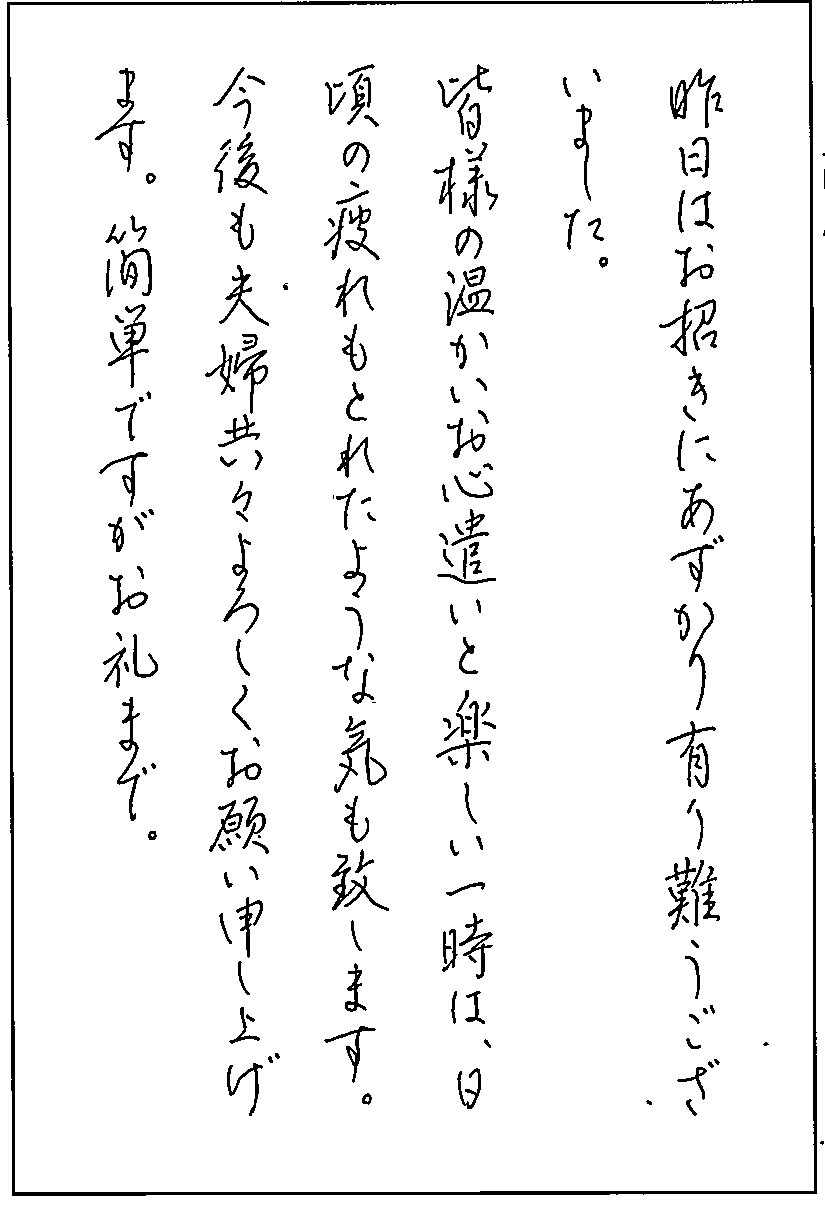 昨日はお招きにあずかり有り難うござ
いました。
皆様の温かいお心遣いと楽しい一時は、日
頃の疲れもとれたような気も致します。
今後も夫婦共々よろしくお願い申し上げ
ます。簡単ですがお礼まで。